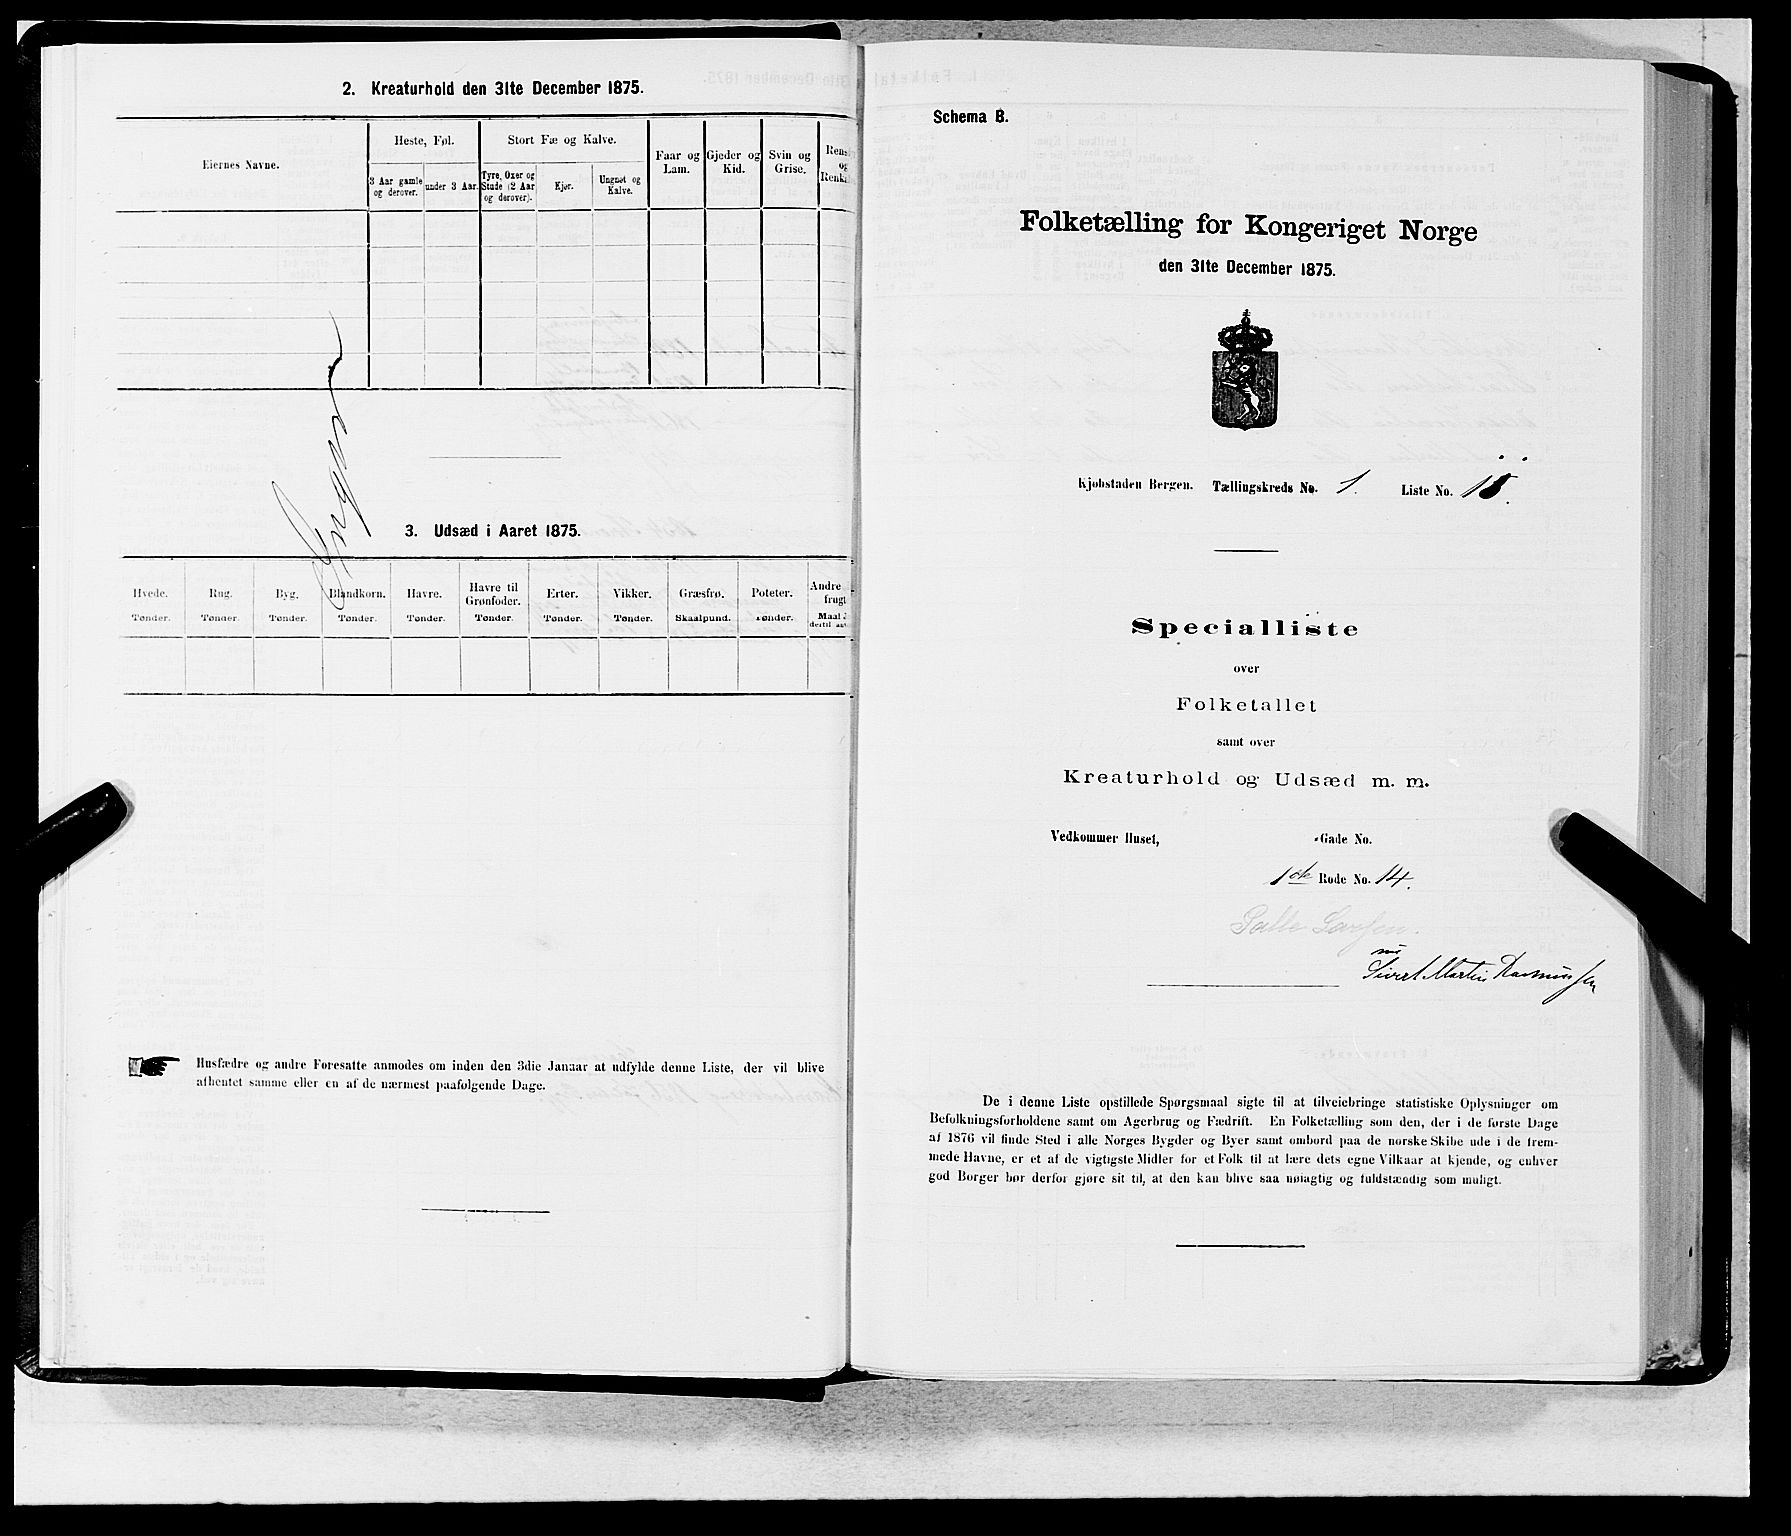 2. Kreaturhold den 31te December 1875.
Eiernes Navne.
Heste, Føl.
Stort Fæ og Kalve.
Faar og Lam.
Gjeder og Kid.
Svin og Grise.
Rens
og
Renk
3 Aar gamle og derover.
under 3 Aar.
Tyre, Oxer og Stude (2 Aar og derover).
Kjør.
Ungnøt og Kalve.
Ingen
3. Udsæd i Aaret 1875.
Hvede. Rug. Byg. Blandkorn. Havre. Havre til Grønfoder. Erter. Vikker. Græsfrø. Poteter. Andre
frugt
Tønder. Tønder. Tønder. Tønder. Tønder. Tønder. Tønder. Tønder. Skaalpund. Tønder. Maal
dertil an
Husfædre og andre Foresatte anmodes om inden den 3die Januar at udfylde denne Liste, der vil blive
afhentet samme eller en af de nærmest paafølgende Dage.
Schema B.
Folketælling for Kongeriget Norge
den 31te December 1875.
Kjøbstaden Bergen. Tællingskreds No. 1. Liste No.
Specialliste
over
Folketallet
samt over
Kreaturhold og Udsæd m. m.
Vedkommer Huset, -Gade No.
1de Rode No. 14.
Salle Larsen.
nu
Sivert Martin Rasmussen
De i denne Liste opstillede Spørgsmaal sigte til at tilveiebringe statistiske Oplysninger om
Befolkningsforholdene samt om Agerbrug og Fædrift. En Folketælling som den, der i de første Dage
af 1876 vil finde Sted i alle Norges Bygder og Byer samt ombord paa de norske Skibe ude i de frem-
mede Havne, er et af de vigtigste Midler for et Folk til at lære dets egne Vilkaar at kjende, og enhver
god Borger bør derfor gjøre sit til, at den kan blive saa nøiagtig og fuldstændig som muligt.